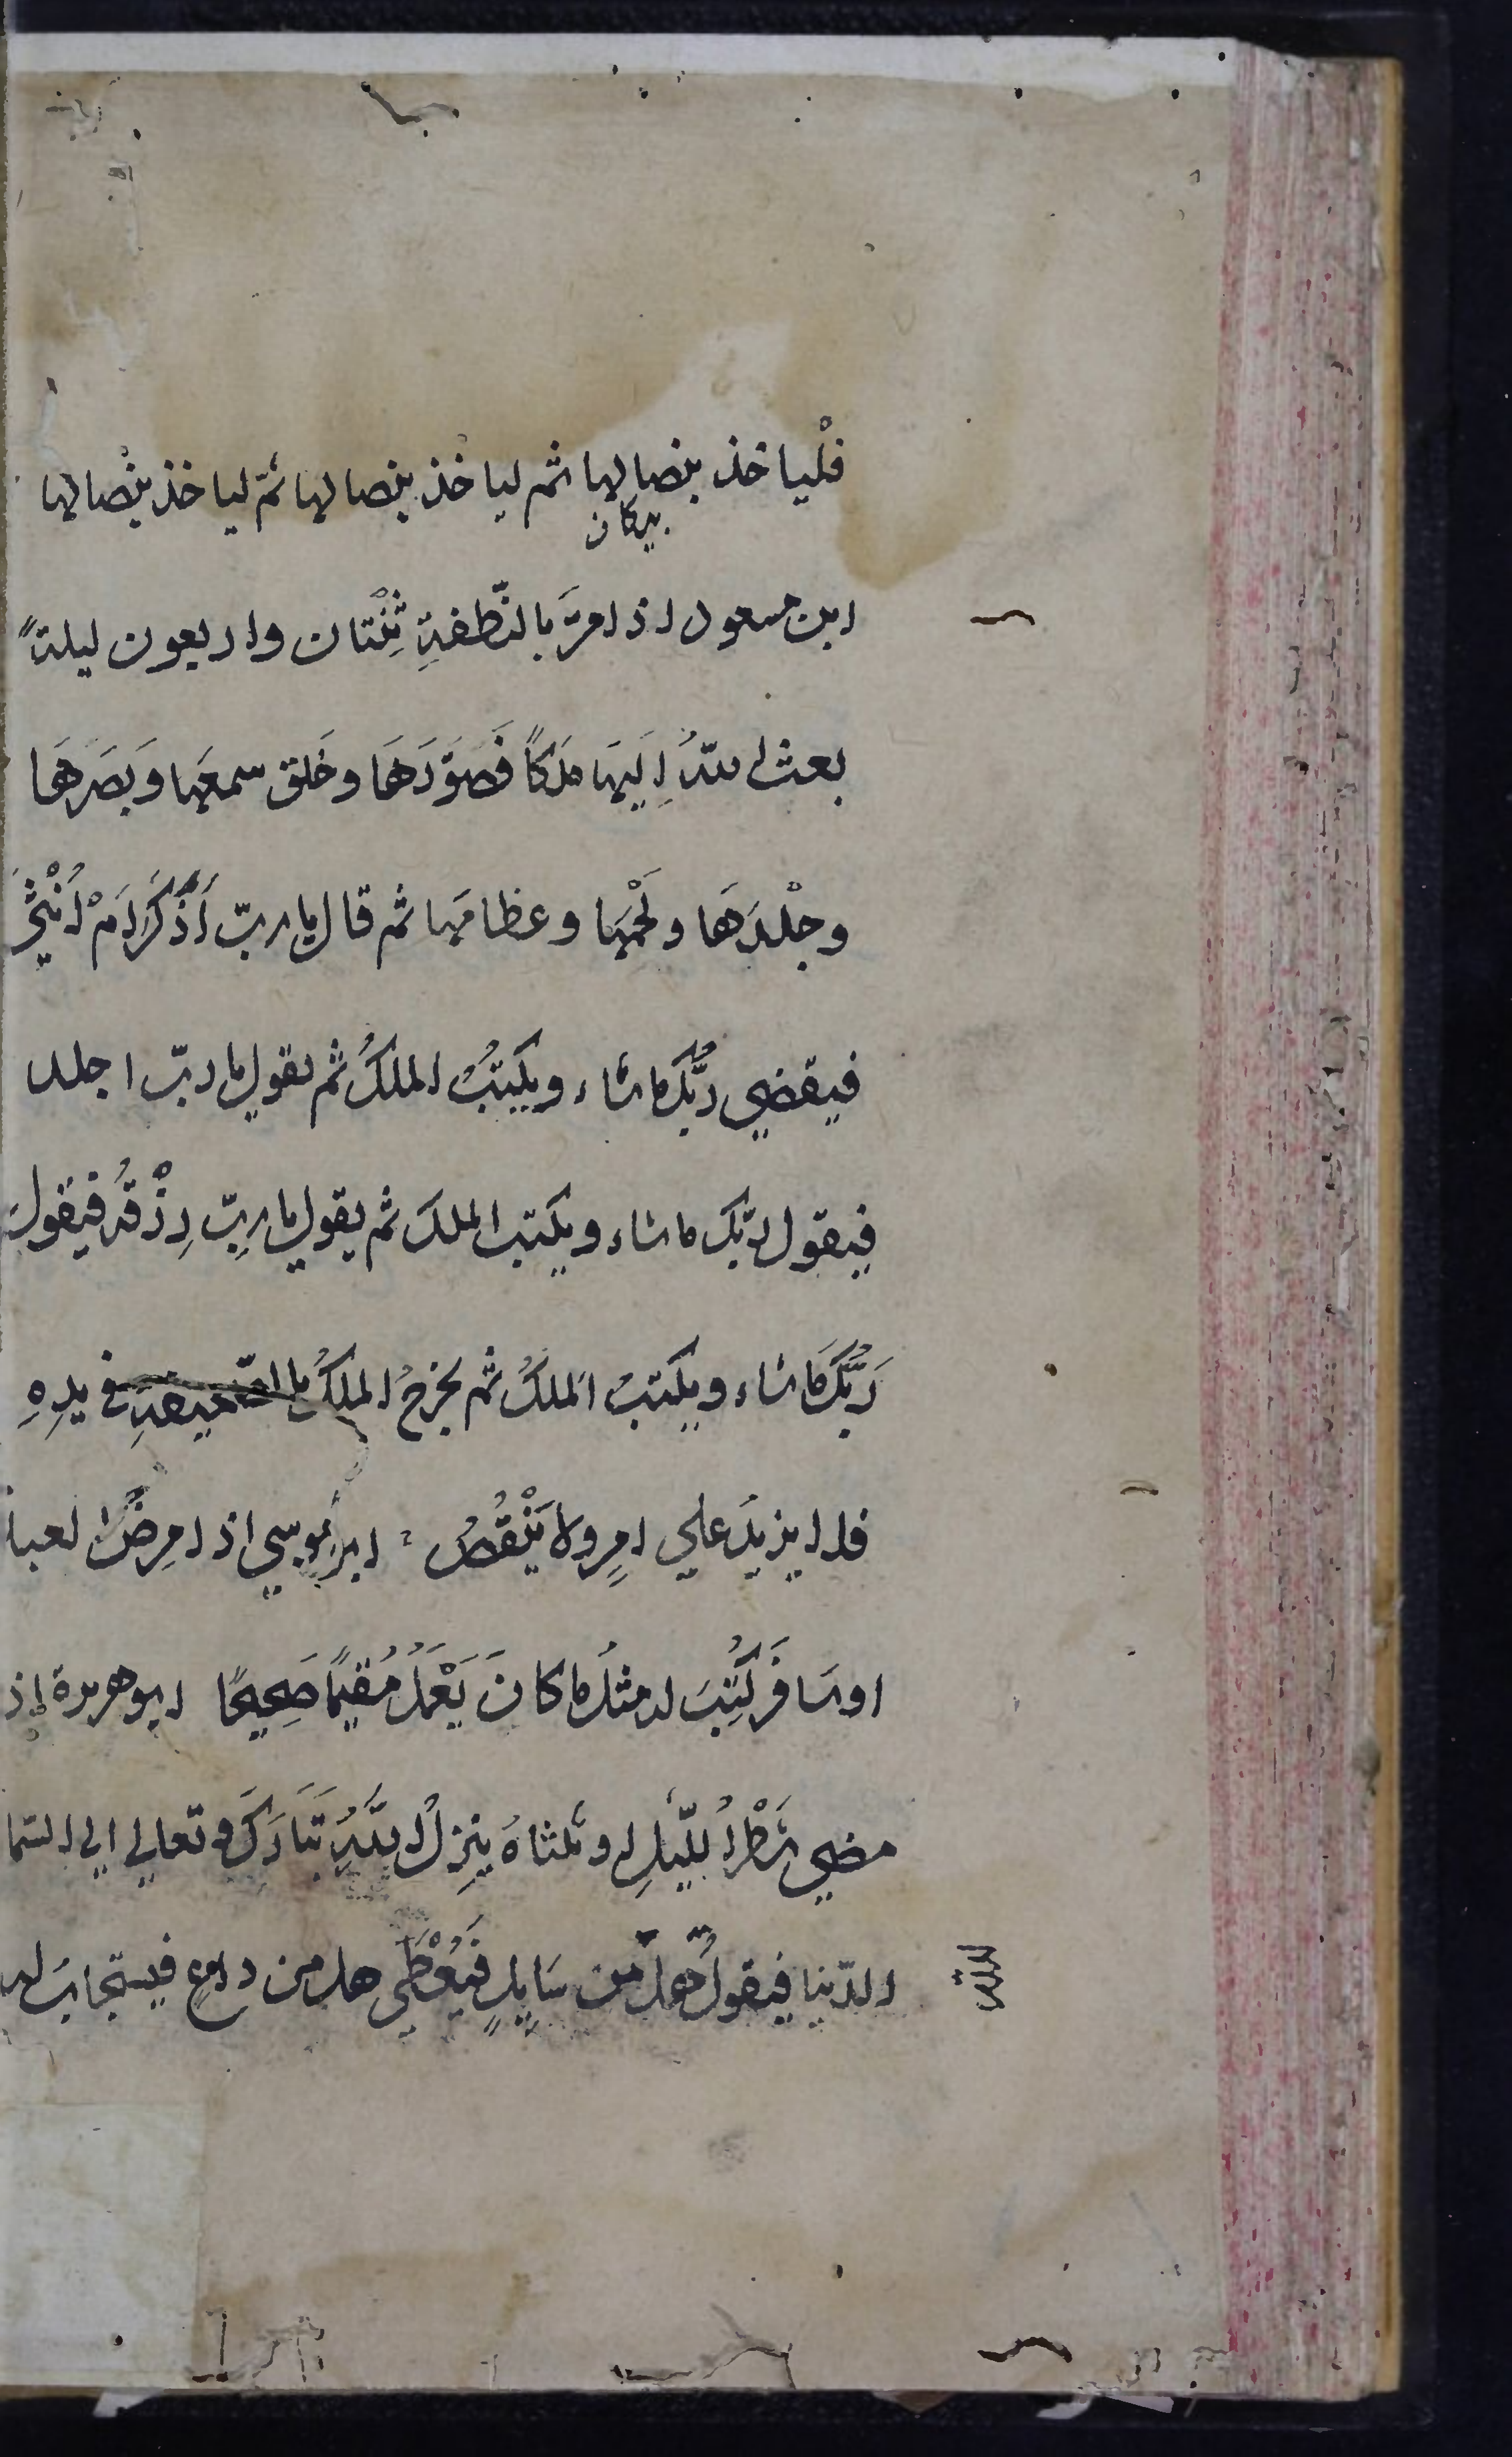 فلْياخذ بنصالها ثم لياخذ بنصالها ثمّ لياخذ بنصالها
پیکان
ابن مسعود اذا مرَّ بالنّطفةِ ثِنْتان واربعون ليلةً
بعث اللهُ اِلَيها مَلَكًا فَصَوَّرَهَا وخَلق سمعَها وَبَصَرَهَا
وجِلْدَهَا ولَحْمَها وعظامَها ثم قال يا ربّ أَذَكَرٌ اَمْ اُنْثَى
فيقضي ربُّك ماشاء ويكتبُ الملكُ ثم يقول يا ربّ اجله
فيقول ربّك ماشاء ويكتب الملك ثم يقول يا ربّ رِزْقُه فيقول
رَبُّكَ مَاشاء ويكتبُ الملكُ ثم يخرجُ الملكُ بالصّحيفةِ في يدِهِ
فلا يزيدُ على امرٍ ولا يَنْقُصُ ابو موسي اذا مرِضَ العبد
اوسَافَرَ كُتِبَ له مثلُ ماكانَ يَعْمَلُ مُقيمًا صَحِيحًا ابوهريرة اذا
مضي شَطْرُ اللّيلِ او ثلثاهُ ينزلُ اللّهُ تَبَارَكَ وتعالي الي السّما
الدّنيا فيقولُ هَلْ من سَايِلٍ فَيُعْطَي هل من داعٍ فيستجابَ له